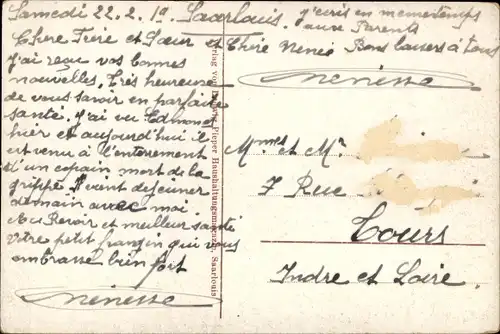 Samedi 22.2.19 Saarlouis
j'écris en meme temps
aux Parents
Chere Frère et Sœur et Chère Nenée Bons baisers à tous
j'ai reçu vos bonnes
nouvelles. Très heureuse
de vous savoir en parfaite
santé. J'ai vu Edmond
hier et aujourd'hui il
est venu à l'enterrement
d'un copain mort de la
grippe. Il vient dejeuner
demain avec moi.
Au Revoir et meilleur santé
Votre petit frangin qui vous
embrasse bien fort
Menesse
Menesse
Verlag von Pieper Haushaltungsmagazin, Saarlouis
Mmes et Mr
7 Rue
Tours
Indre et Loire.